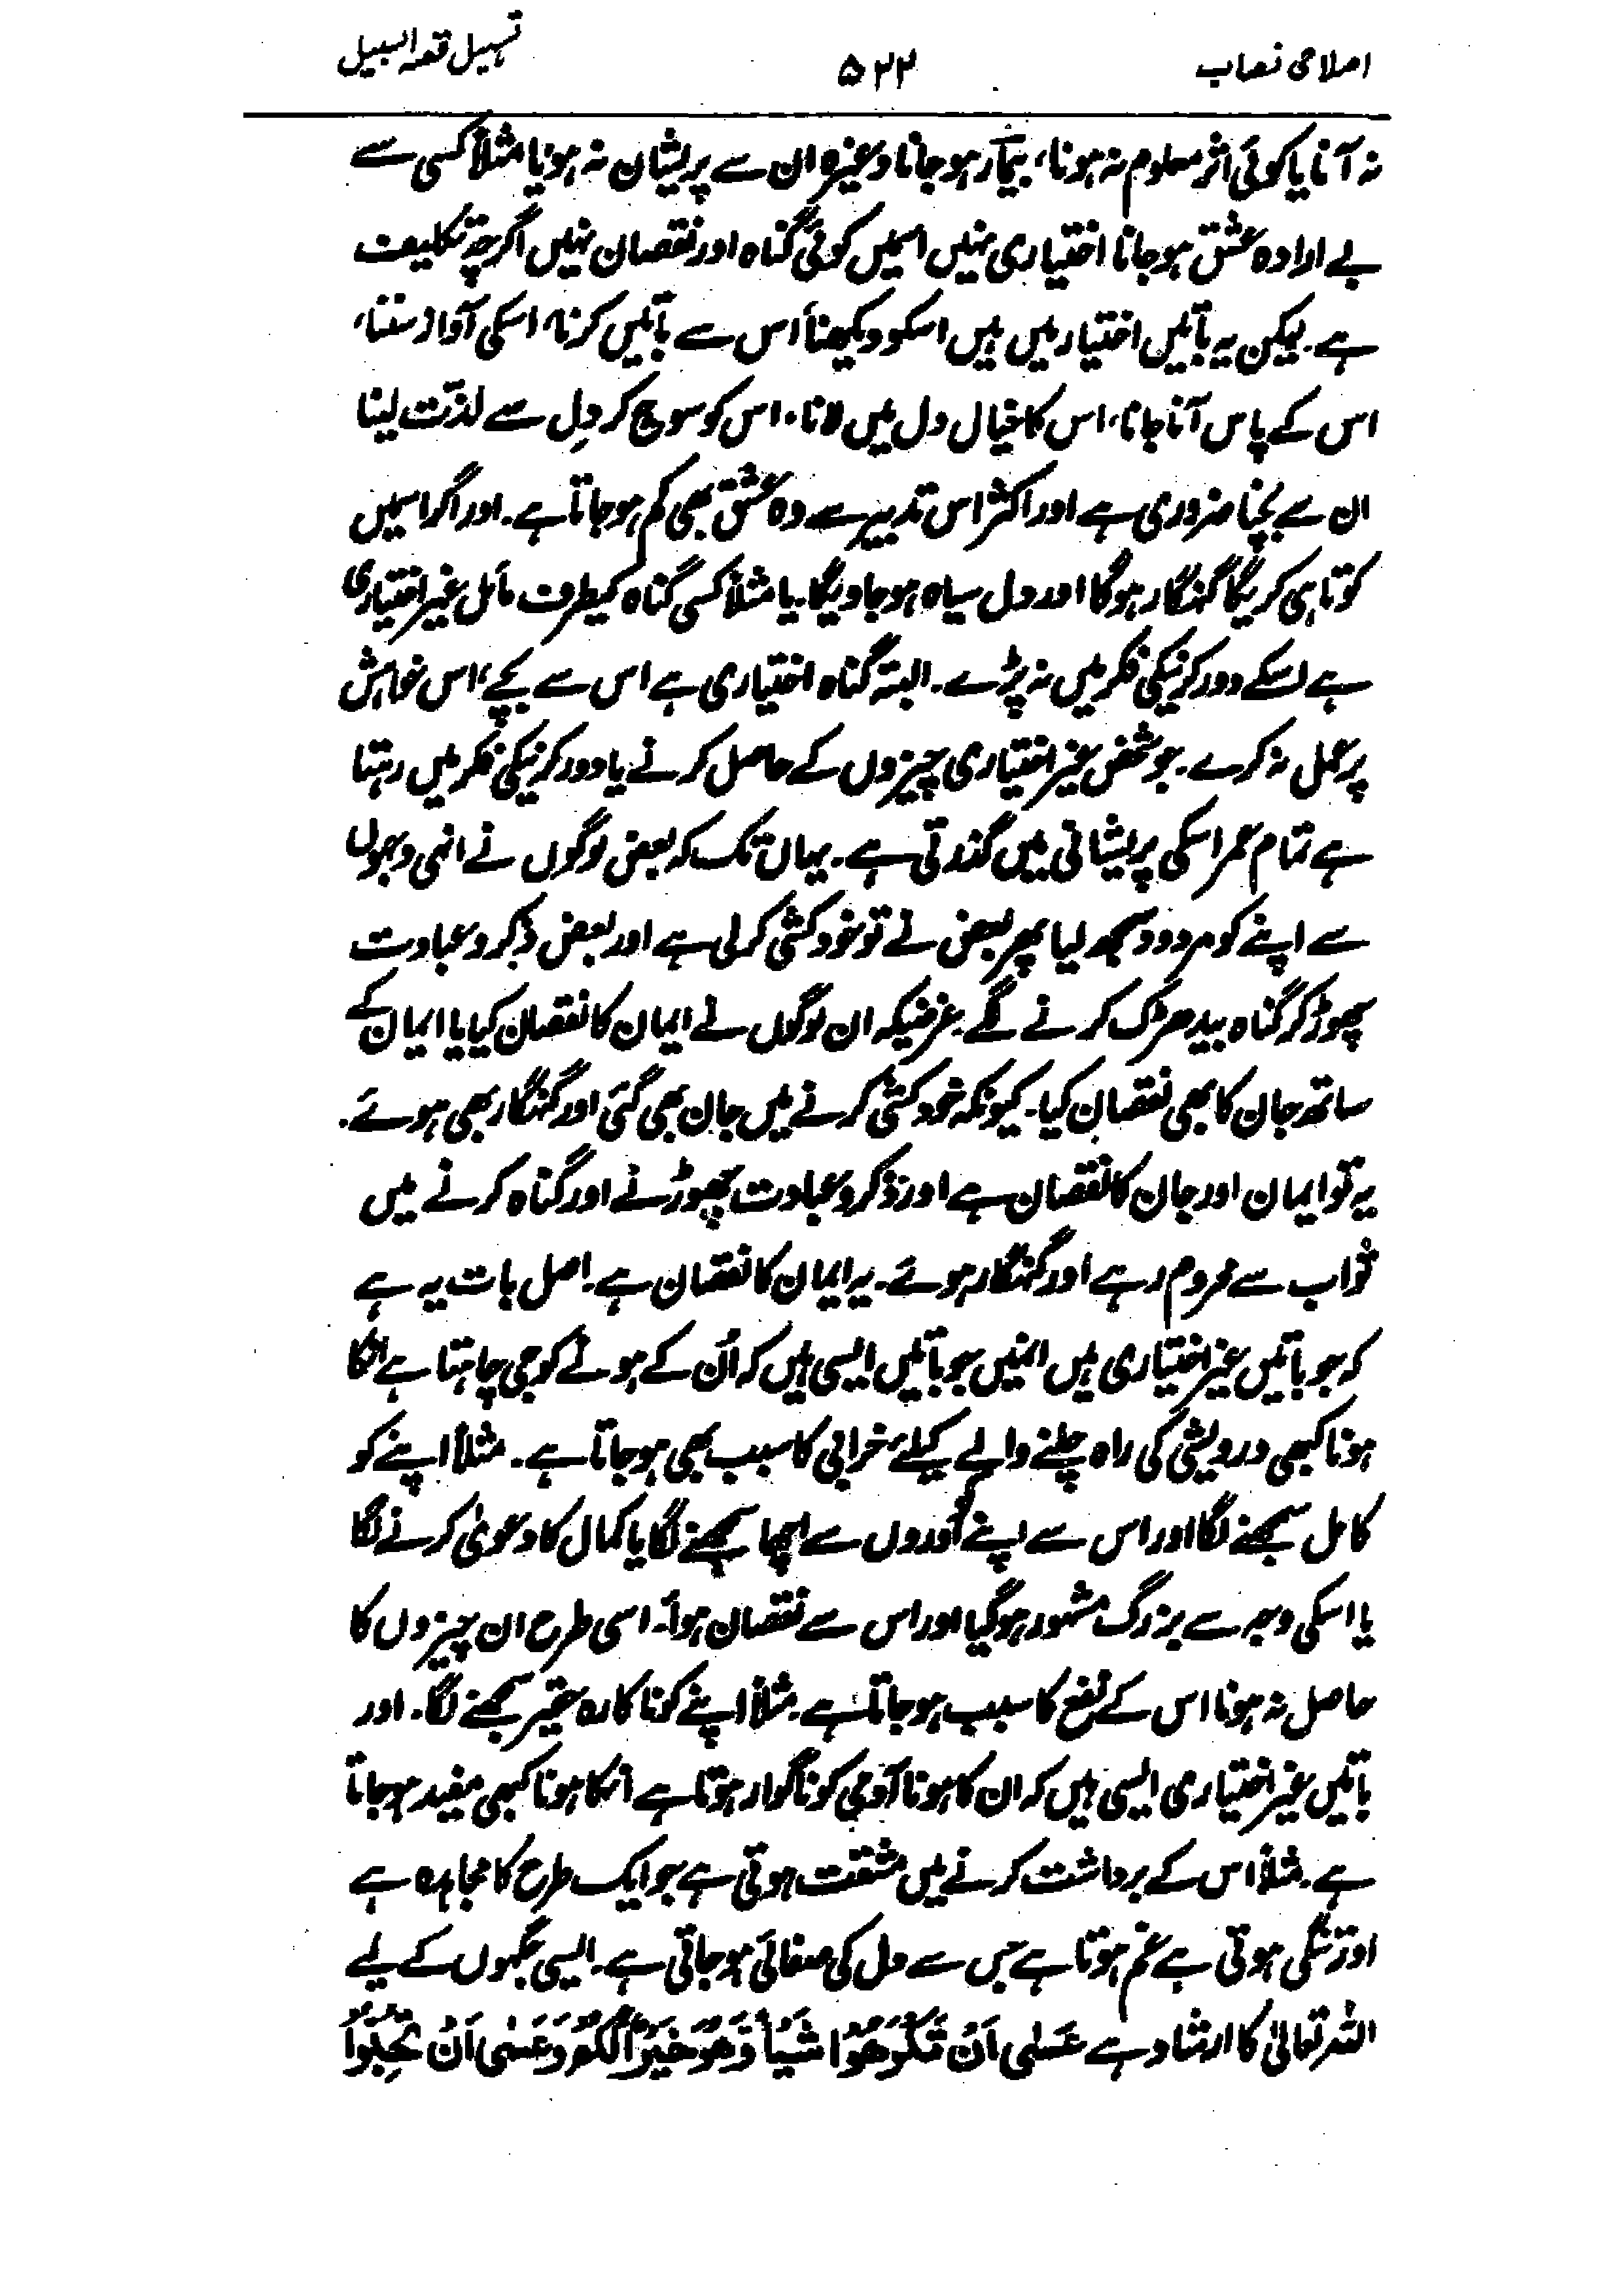 اصلاحی نصاب ۵۲۲ تسہیل قصد السبیل
نہ آنا یا کوئی اثر معلوم نہ ہونا، بیمار ہو جانا وغیرہ ان سے پریشان نہ ہو یا مثلاً کسی سے
بے ارادہ عشق ہو جانا اختیاری نہیں اسمیں کوئی گناہ اور نقصان نہیں اگرچہ تکلیف
ہے۔ لیکن یہ باتیں اختیار میں ہیں اسکو دیکھنا اس سے باتیں کرنا، اسکی آواز سننا،
اس کے پاس آنا جانا، اس کا خیال دل میں لانا، اس کو سوچ کر دِل سے لذّت لینا
ان سے بچنا ضروری ہے اور اکثر اس تدبیر سے وہ عشق بھی کم ہو جاتا ہے۔ اور اگر اسمیں
کوتاہی کریگا گنہگار ہوگا اور دل سیاہ ہو جاویگا۔ یا مثلاً کسی گناہ کیطرف مائل غیر اختیاری
ہے اسکے دور کرنیکی فکر میں نہ پڑے۔ البتہ گناہ اختیاری ہے اس سے بچے، اس خواہش
پر عمل نہ کرے۔ جو شخص غیر اختیاری چیزوں کے حاصل کرنے یا دور کرنیکی فکر میں رہتا
ہے تمام عمر اسکی پریشانی میں گذرتی ہے۔ یہاں تک کہ بعض لوگوں نے انہی وجہوں
سے اپنے کو مردود سمجھ لیا پھر بعض نے تو خودکشی کرلی ہے اور بعض ذکر و عبادت
چھوڑ کر گناہ بیدھڑک کرنے لگے۔ غرضیکہ ان لوگوں نے ایمان کا نقصان کیا یا ایمان کے
ساتھ جان کا بھی نقصان کیا۔ کیونکہ خودکشی کرنے میں جان بھی گئی اور گنہگار بھی ہوئے۔
یہ تو ایمان اور جان کا نقصان ہے اور ذکر و عبادت چھوڑنے اور گناہ کرنے میں
ثواب سے محروم رہے اور گنہگار ہوئے۔ یہ ایمان کا نقصان ہے۔ اصل بات یہ ہے
کہ جو باتیں غیر اختیاری ہیں انمیں جو باتیں ایسی ہیں کہ اُن کے ہونے کو جی چاہتا ہے انکا
ہونا کبھی درویشی کی راہ چلنے والے کیلئے خرابی کا سبب بھی ہو جاتا ہے۔ مثلاً اپنے کو
کامل سمجھنے لگا اور اس سے اپنے کو اَوروں سے اچھا سمجھنے لگا یا کمال کا دعویٰ کرنے لگا
یا اسکی وجہ سے بزرگ مشہور ہو گیا اور اس سے نقصان ہوا۔ اسی طرح ان چیزوں کا
حاصل نہ ہونا اس کے نفع کا سبب ہو جاتا ہے۔ مثلاً اپنے کو ناکارہ حقیر سمجھنے لگا۔ اور
باتیں غیر اختیاری ایسی ہیں کہ ان کا ہونا آدمی کو ناگوار ہوتا ہے انکا ہونا کبھی مفید ہو جاتا
ہے۔ مثلاً اس کے برداشت کرنے میں مشقت ہوتی ہے جو ایک طرح کا مجاہدہ ہے
اور تنگی ہوتی ہے غم ہوتا ہے جس سے دل کی صفائی ہو جاتی ہے۔ ایسی جگہوں کے لیے
اللہ تعالیٰ کا ارشاد ہے عَسٰی اَنْ تَکْرَهُوْا شَیْأً وَّهُوَ خَیْرٌ لَّکُمْ وَ عَسٰی اَنْ تُحِبُّوْا